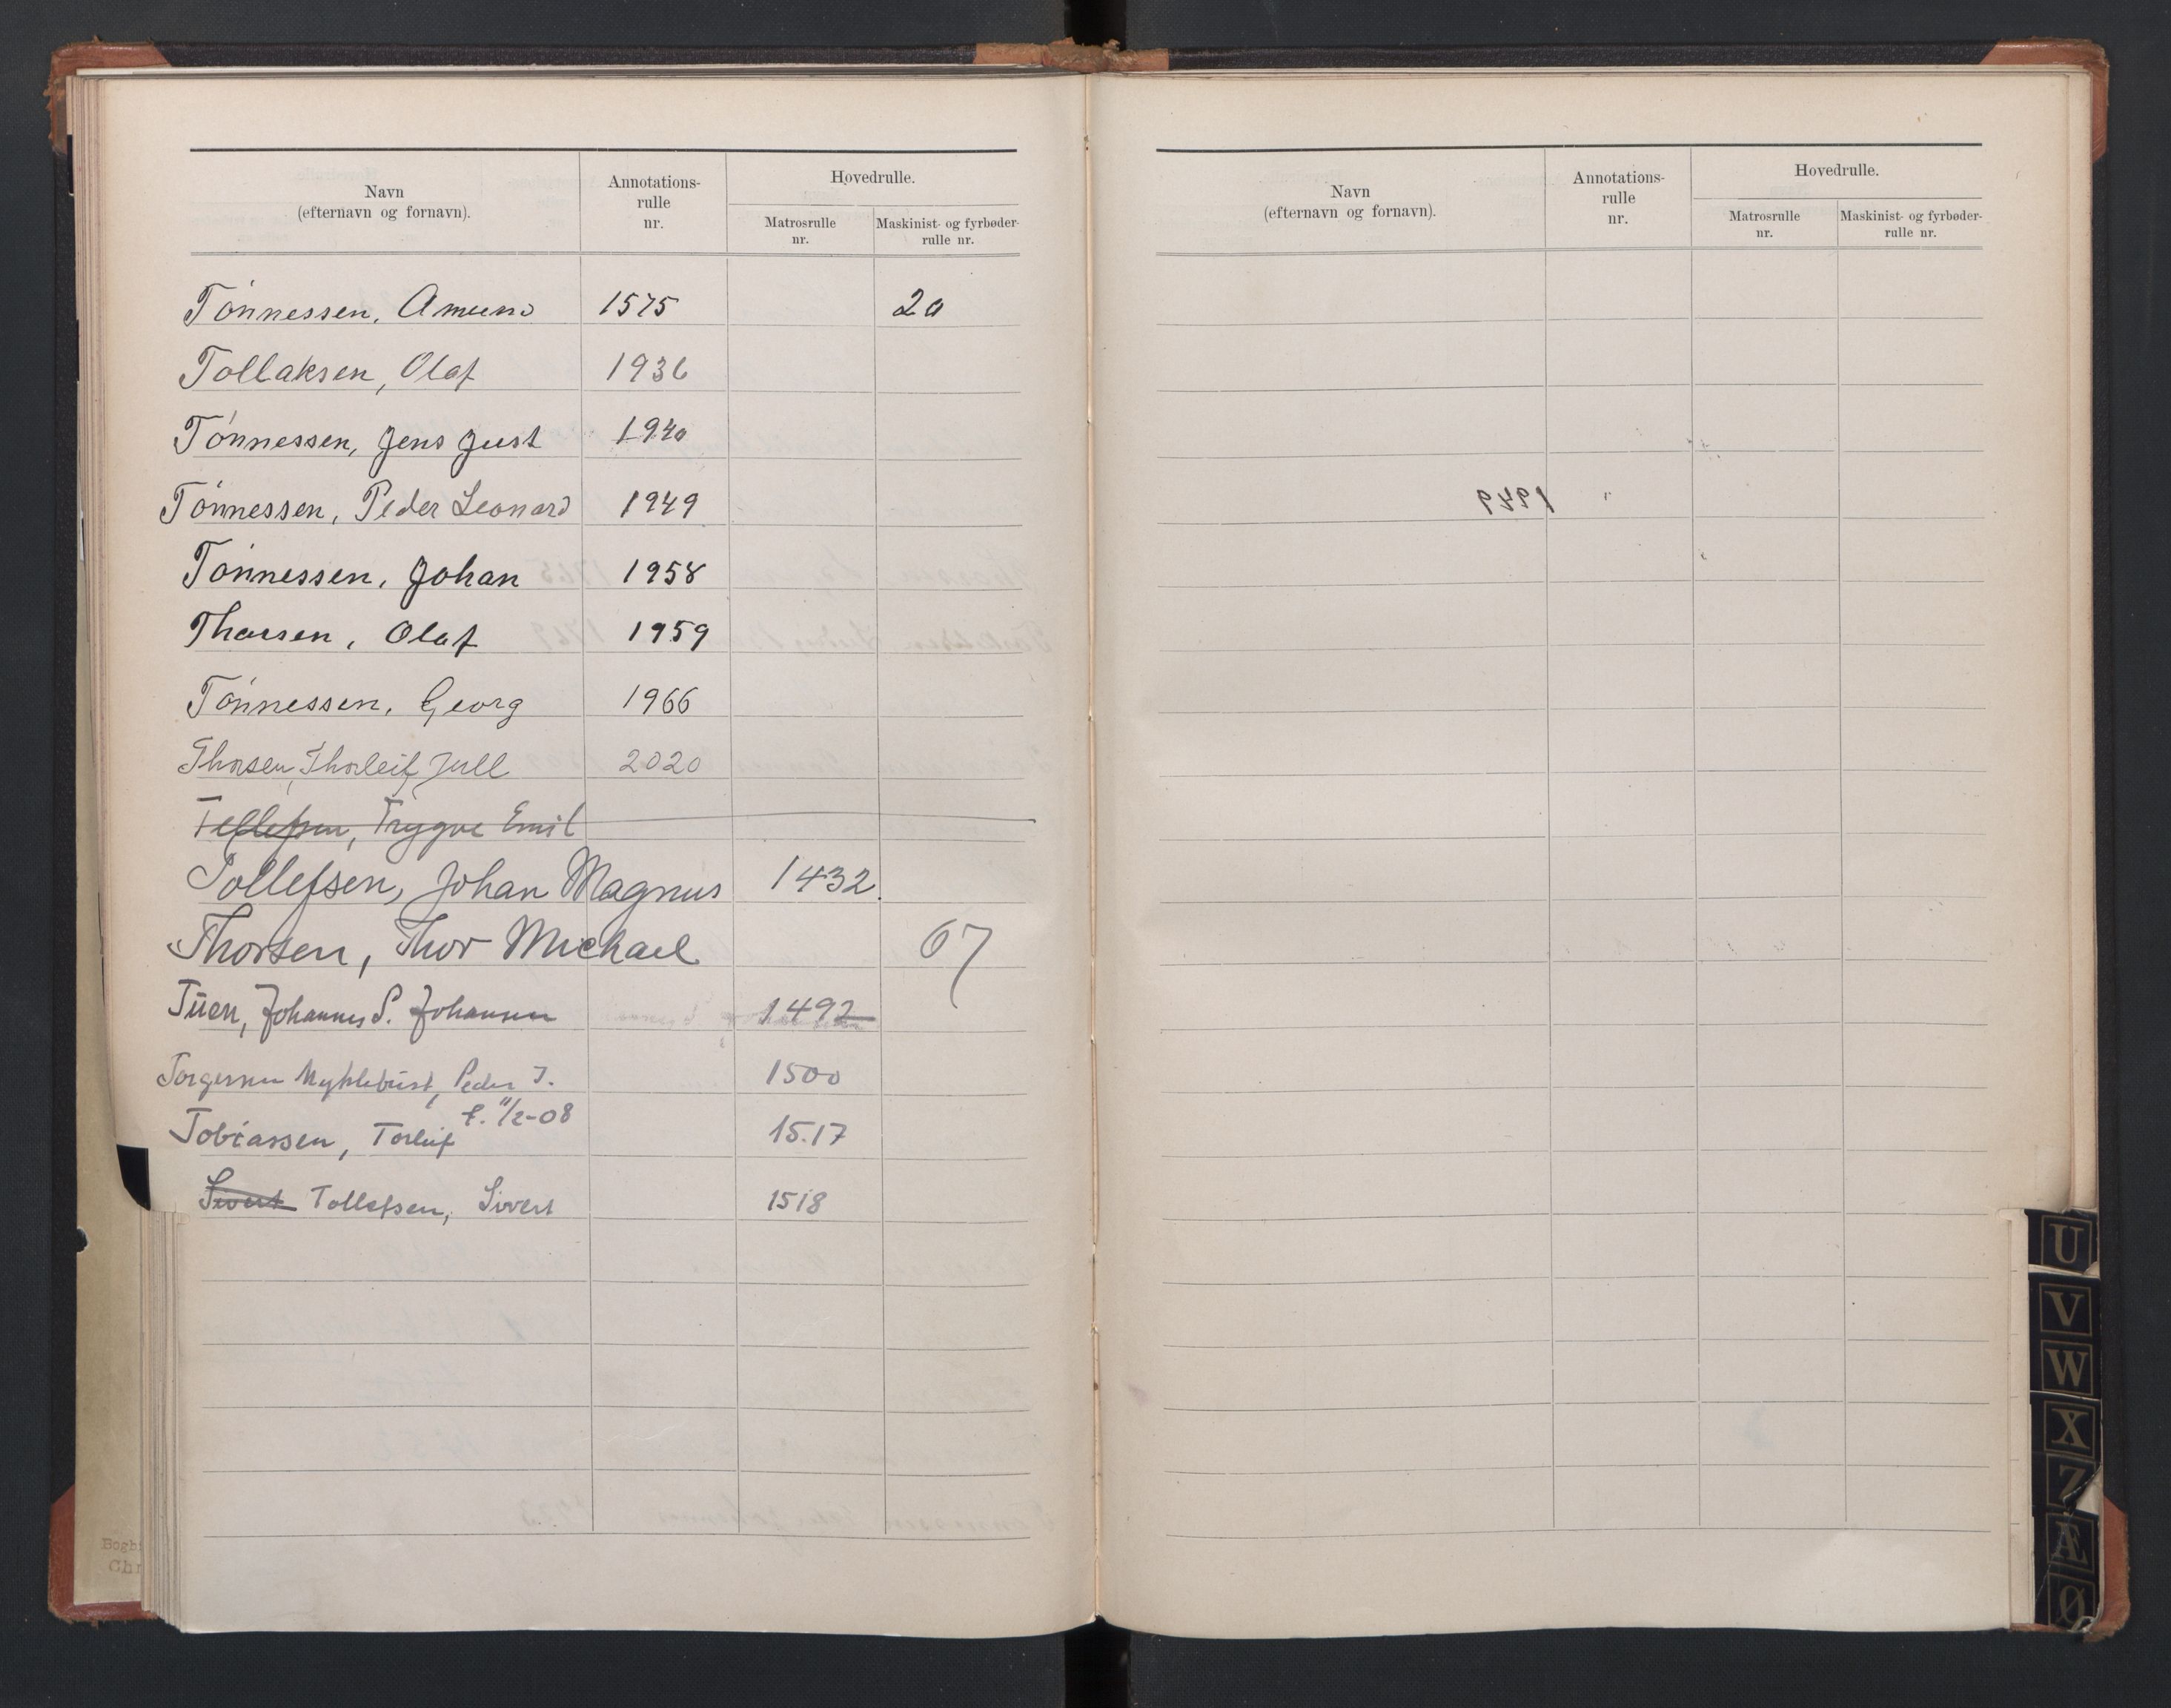 Navn
(efternavn og fornavn).
Annotations-
rulle
nr.
Hovedrulle.
Matrosrulle
nr.
Maskinist- og fyrbøder-
rulle nr.
Tønnessen, Amund 1575 20
Tollaksen, Olaf 1936
Tønnessen, Jens Just 1940
Tønnessen, Peder Leonard 1949
Tønnessen, Johan 1958
Thorsen, Olaf 1959
Tønnessen, Georg 1966
Thorsen, Thorleif Juell 2020
Tellefsen, Trygve Emil
Tollefsen, Johan Magnus 1432.
Thorsen, Thor Michael 67
Tuen, Johannes S. Johansen 1492
Torgersen Myklebust, Peder T. 1500
f. 11/2-08
Tobiassen, Torleif 1517
Sivert Tollefsen, Sivert 1518
Navn
(efternavn og fornavn).
Annotations-
rulle
nr.
Hovedrulle.
Matrosrulle
nr.
Maskinist- og fyrbøder-
rulle nr.
1949
U
V
W
X
Z
Æ
Ø
Bogbi
Chr